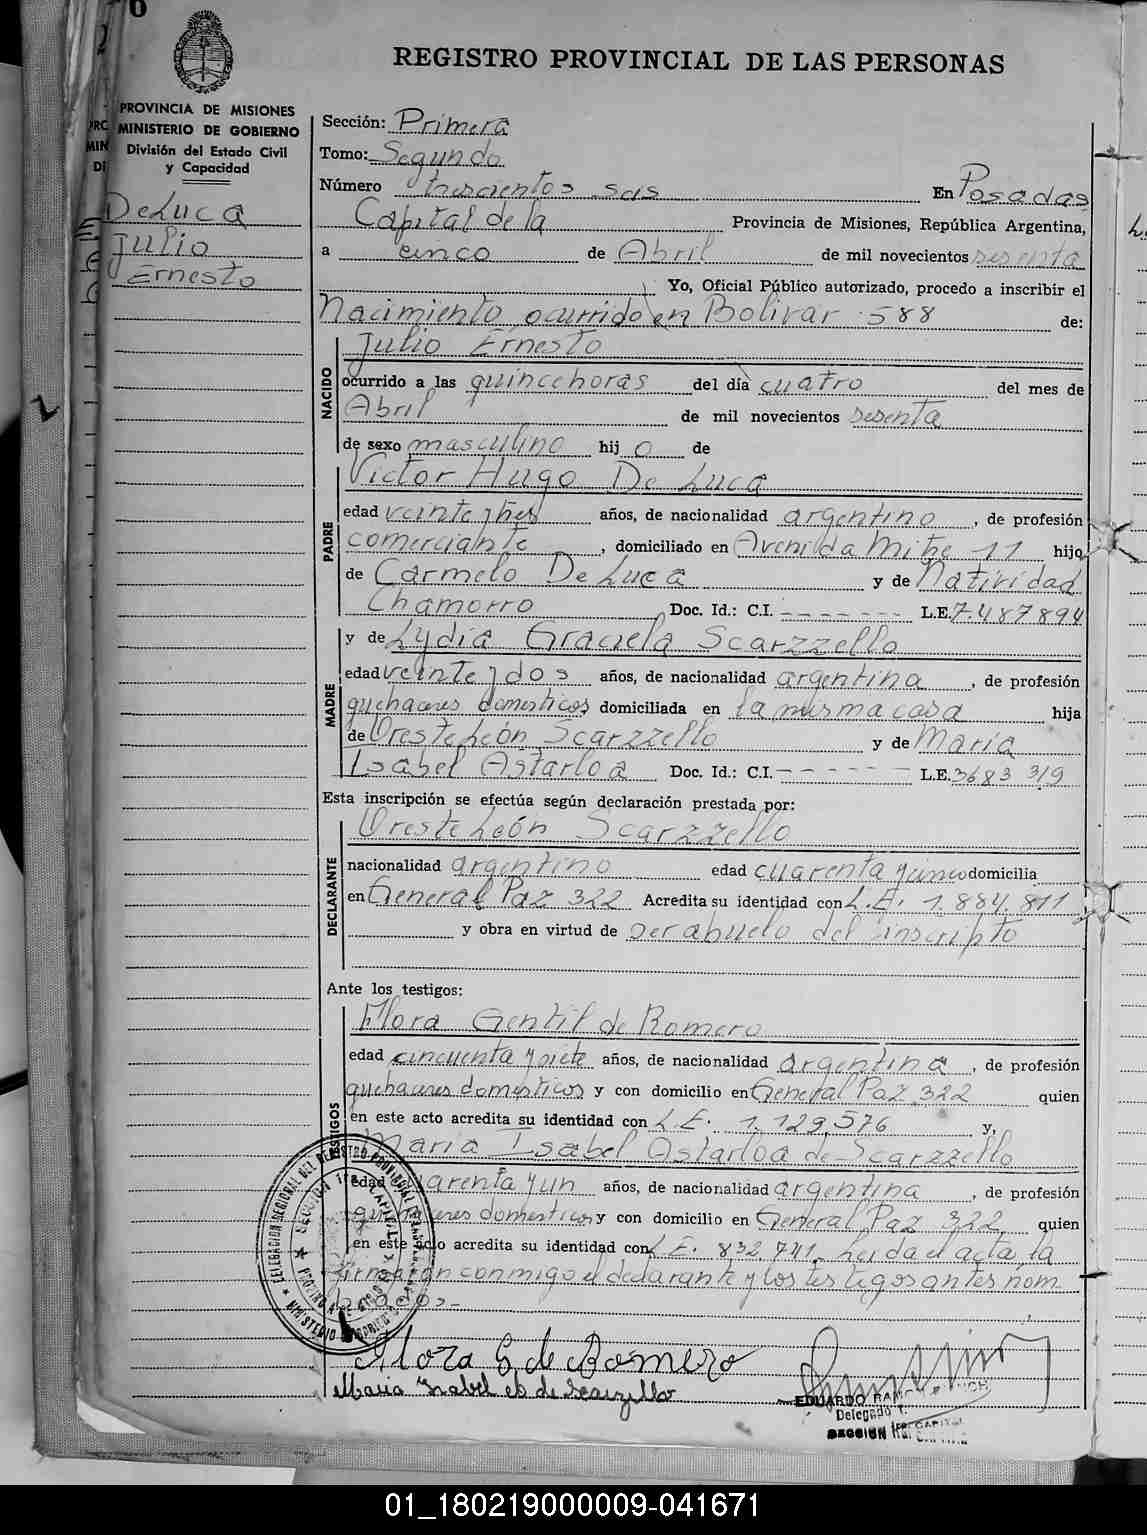 REGISTRO PROVINCIAL DE LAS PERSONAS
PROVINCIA DE MISIONES
MINISTERIO DE GOBIERNO
División del Estado Civil
y Capacidad
DeLuca
Julio
Ernesto
Sección: Primera
Tomo: Segundo
Número trescientos seis En Posadas
Capital de la Provincia de Misiones, República Argentina,
a cinco de Abril de mil novecientos sesenta
Yo, Oficial Público autorizado, procedo a inscribir el
Nacimiento ocurrido en Bolivar 588 de:
NACIDO
Julio Ernesto
ocurrido a las quince horas del día cuatro del mes de
Abril de mil novecientos sesenta
de sexo masculino hij o de
PADRE
Victor Hugo De Luca
edad veinte y tres años, de nacionalidad argentino, de profesión
comerciante, domiciliado en Avenida Mitre 11 hijo
de Carmelo De Luca y de Natividad
Chamorro Doc. Id.: C.I. - - - - - - - L.E. 7.487894
MADRE
y de Lydia Graciela Scarzzello
edad veinte y dos años, de nacionalidad argentina, de profesión
quehaceres domesticos domiciliada en la misma casa hija
de Oreste León Scarzzello y de Maria
Isabel Astarloa Doc. Id.: C.I. - - - - - - L.E. 3683319
Esta inscripción se efectúa según declaración prestada por:
DECLARANTE
Oreste León Scarzzello
nacionalidad argentino edad cuarenta y cinco domicilia
en General Paz 322 Acredita su identidad con L.E. 1.884.811
y obra en virtud de ser abuelo del inscripto
Ante los testigos:
TESTIGOS
Flora Gentil de Romero
edad cincuenta y siete años, de nacionalidad argentina, de profesión
quehaceres domesticos y con domicilio en General Paz 322 quien
en este acto acredita su identidad con L.E. 1.129,576 y,
Maria Isabel Astarloa de Scarzzello
edad cuarenta y un años, de nacionalidad argentina, de profesión
quehaceres domesticos y con domicilio en General Paz 322 quien
en este acto acredita su identidad con L.E. 832,741. Leida el acta, la
firmaron conmigo el declarante y los testigos antes nom
brados.-
Flora G de Romero
Maria Isabel de Scarzello
EDUARDO
Delegado
SECCION 1ra. CAPITAL
01_180219000009-041671